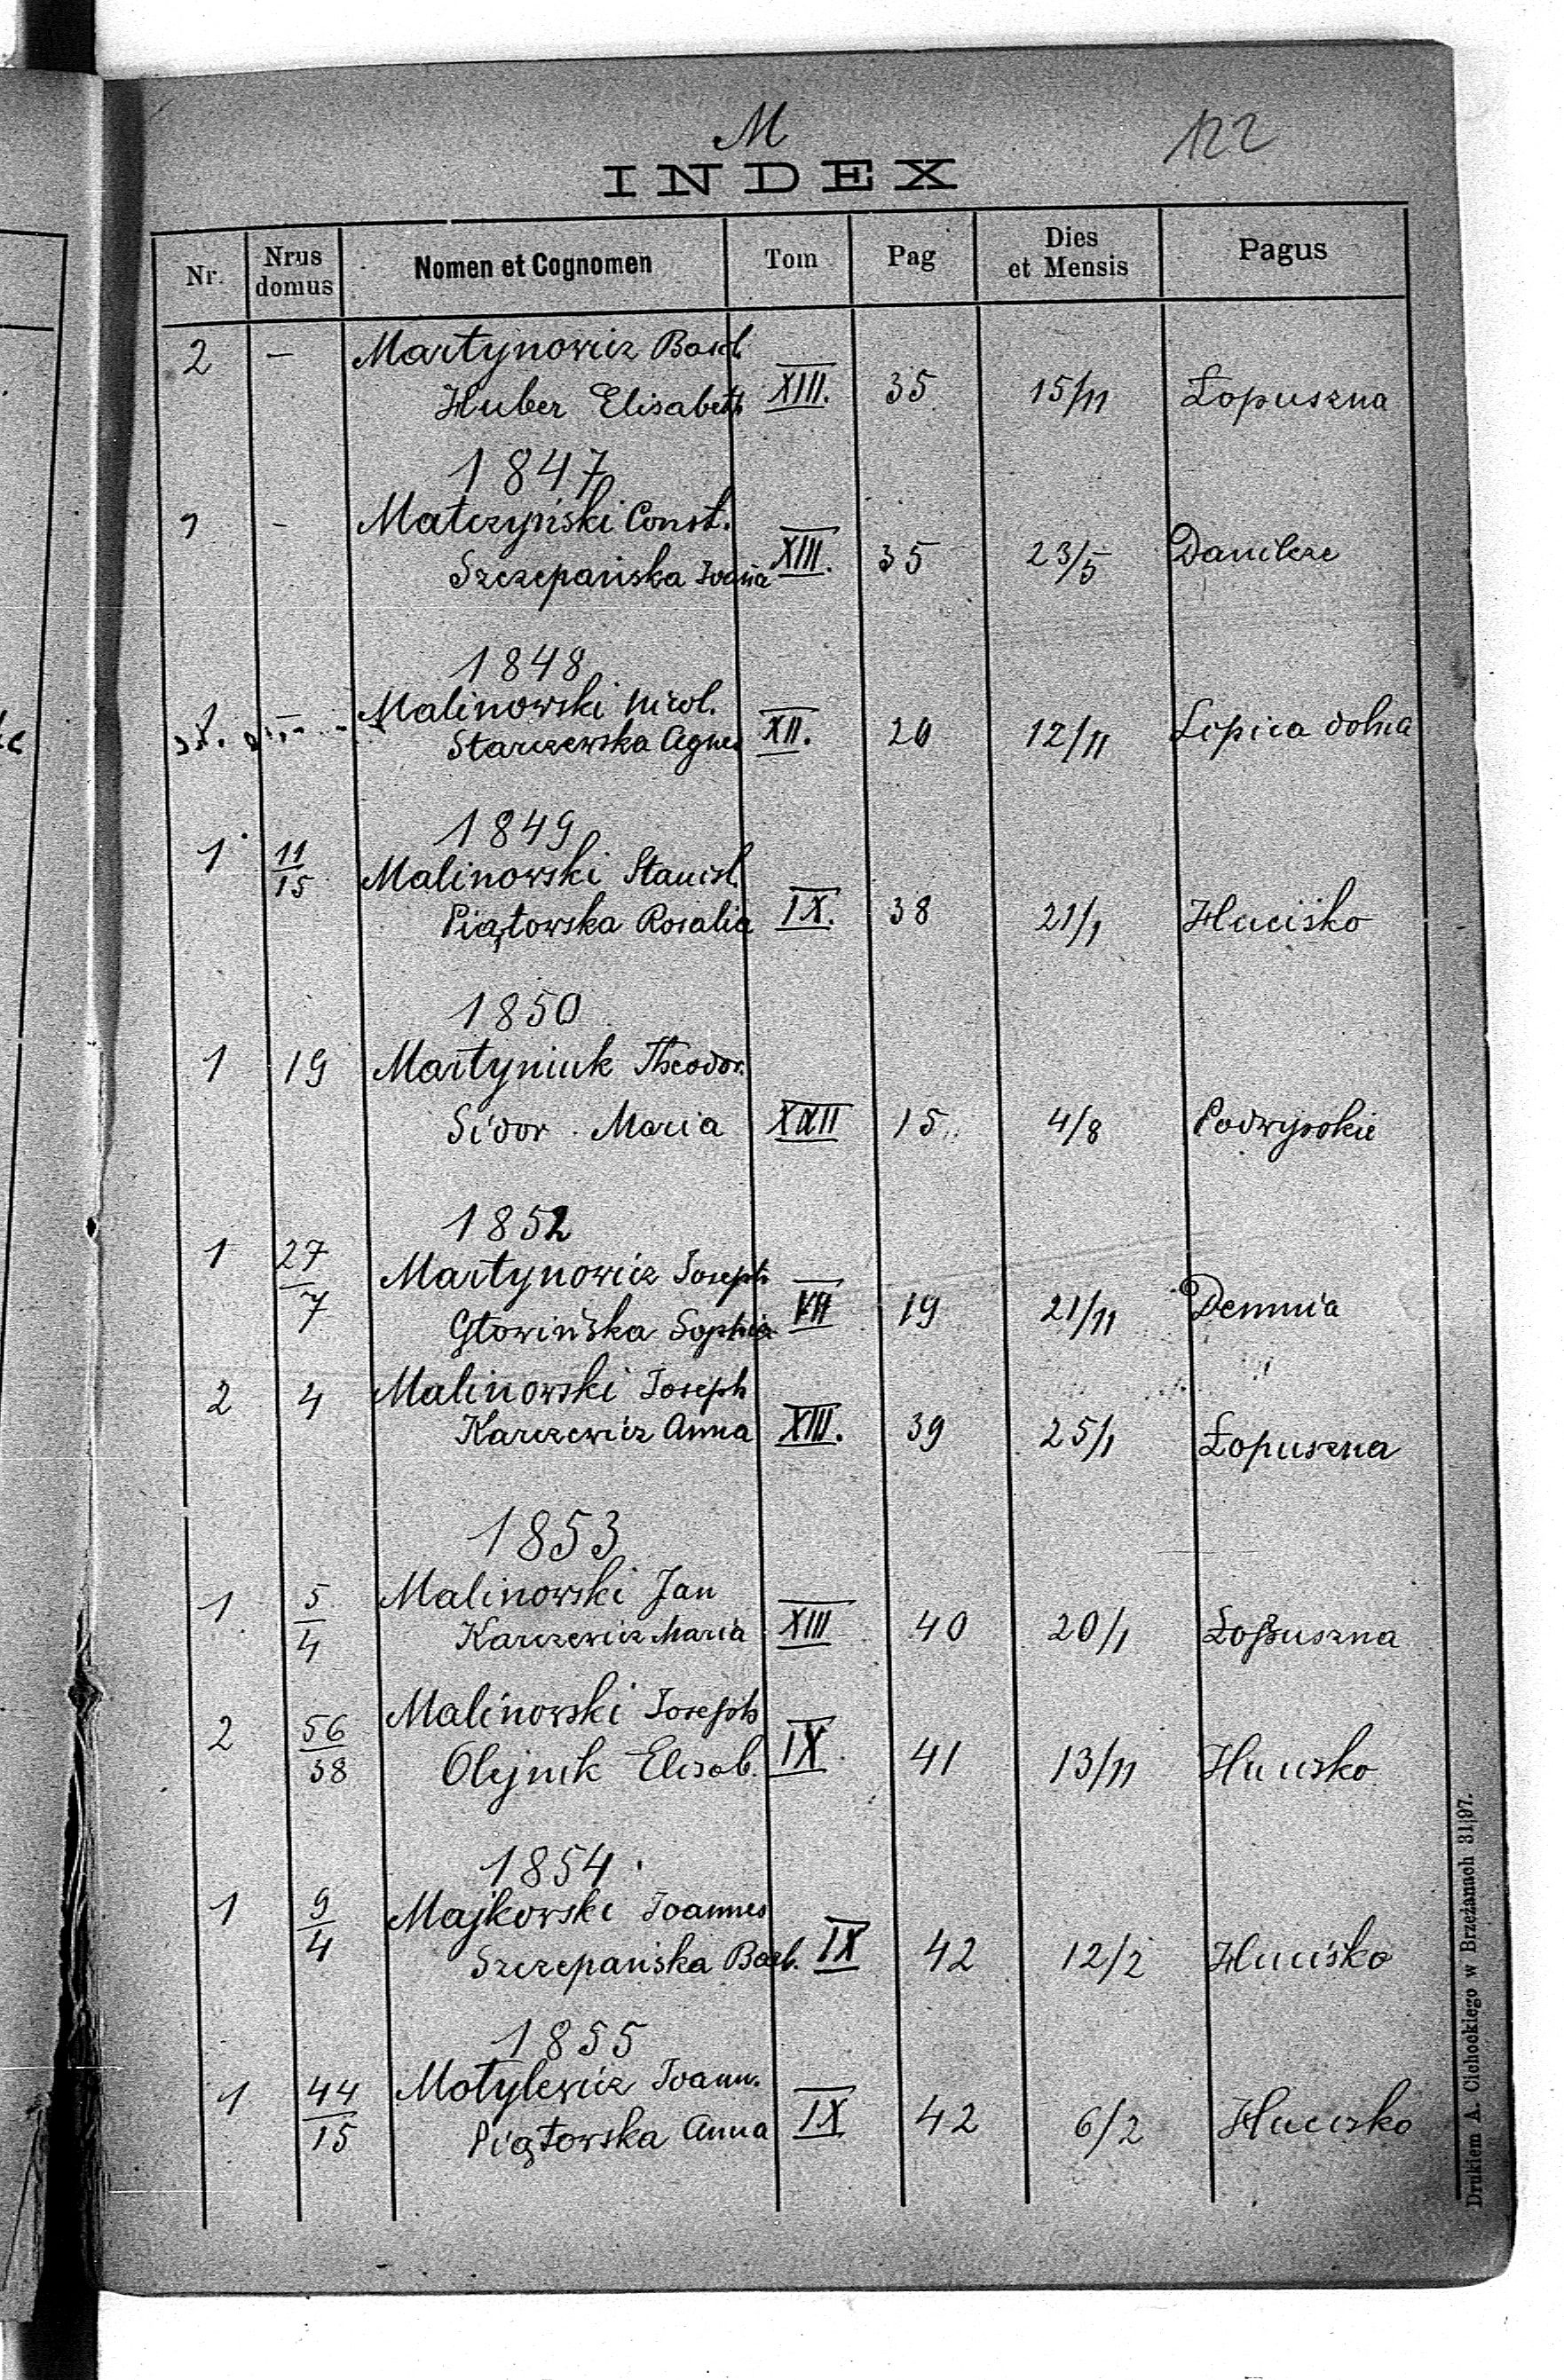 M
122
INDEX
Nr. Nrus domus Nomen et Cognomen Tom Pag Dies et Mensis Pagus
2 — Martynowicz Basil.
Huber Elisabeth XIII. 35 15/11 Łopuszna
1847
1 - Matczyński Const.
Szczepańska Joanna XIII. 35 23/5 Danilcze
1848
— Malinowski Nicol.
Starczewska Agnes XII. 20 12/11 Lipica dolna
1849
1 11/15 Malinowski Stanisl.
Piątowska Rosalia IX. 38 21/1 Hucisko
1850
1 19 Martyniuk Theodor.
Sidor Maria XXII 15 4/8 Podwysokie
1852
1 27/7 Martynowicz Joseph
Głowińska Sophia VII 19 21/11 Demnia
2 4 Malinowski Joseph
Karczewicz Anna XIII. 39 25/1 Łopuszna
1853
1 5/4 Malinowski Jan
Karczewicz Maria XIII 40 20/1 Łopuszna
2 56/38 Malinowski Joseph
Olejnik Elisab. IX 41 13/11 Hucisko
1854
1 9/4 Majkowski Joannes
Szczepańska Barb. IX 42 12/2 Hucisko
1855
1 44/15 Motylewicz Joann.
Piątowska Anna IX 42 6/2 Hucisko
Drukiem A. Cichockiego w Brzeżanach 31|97.